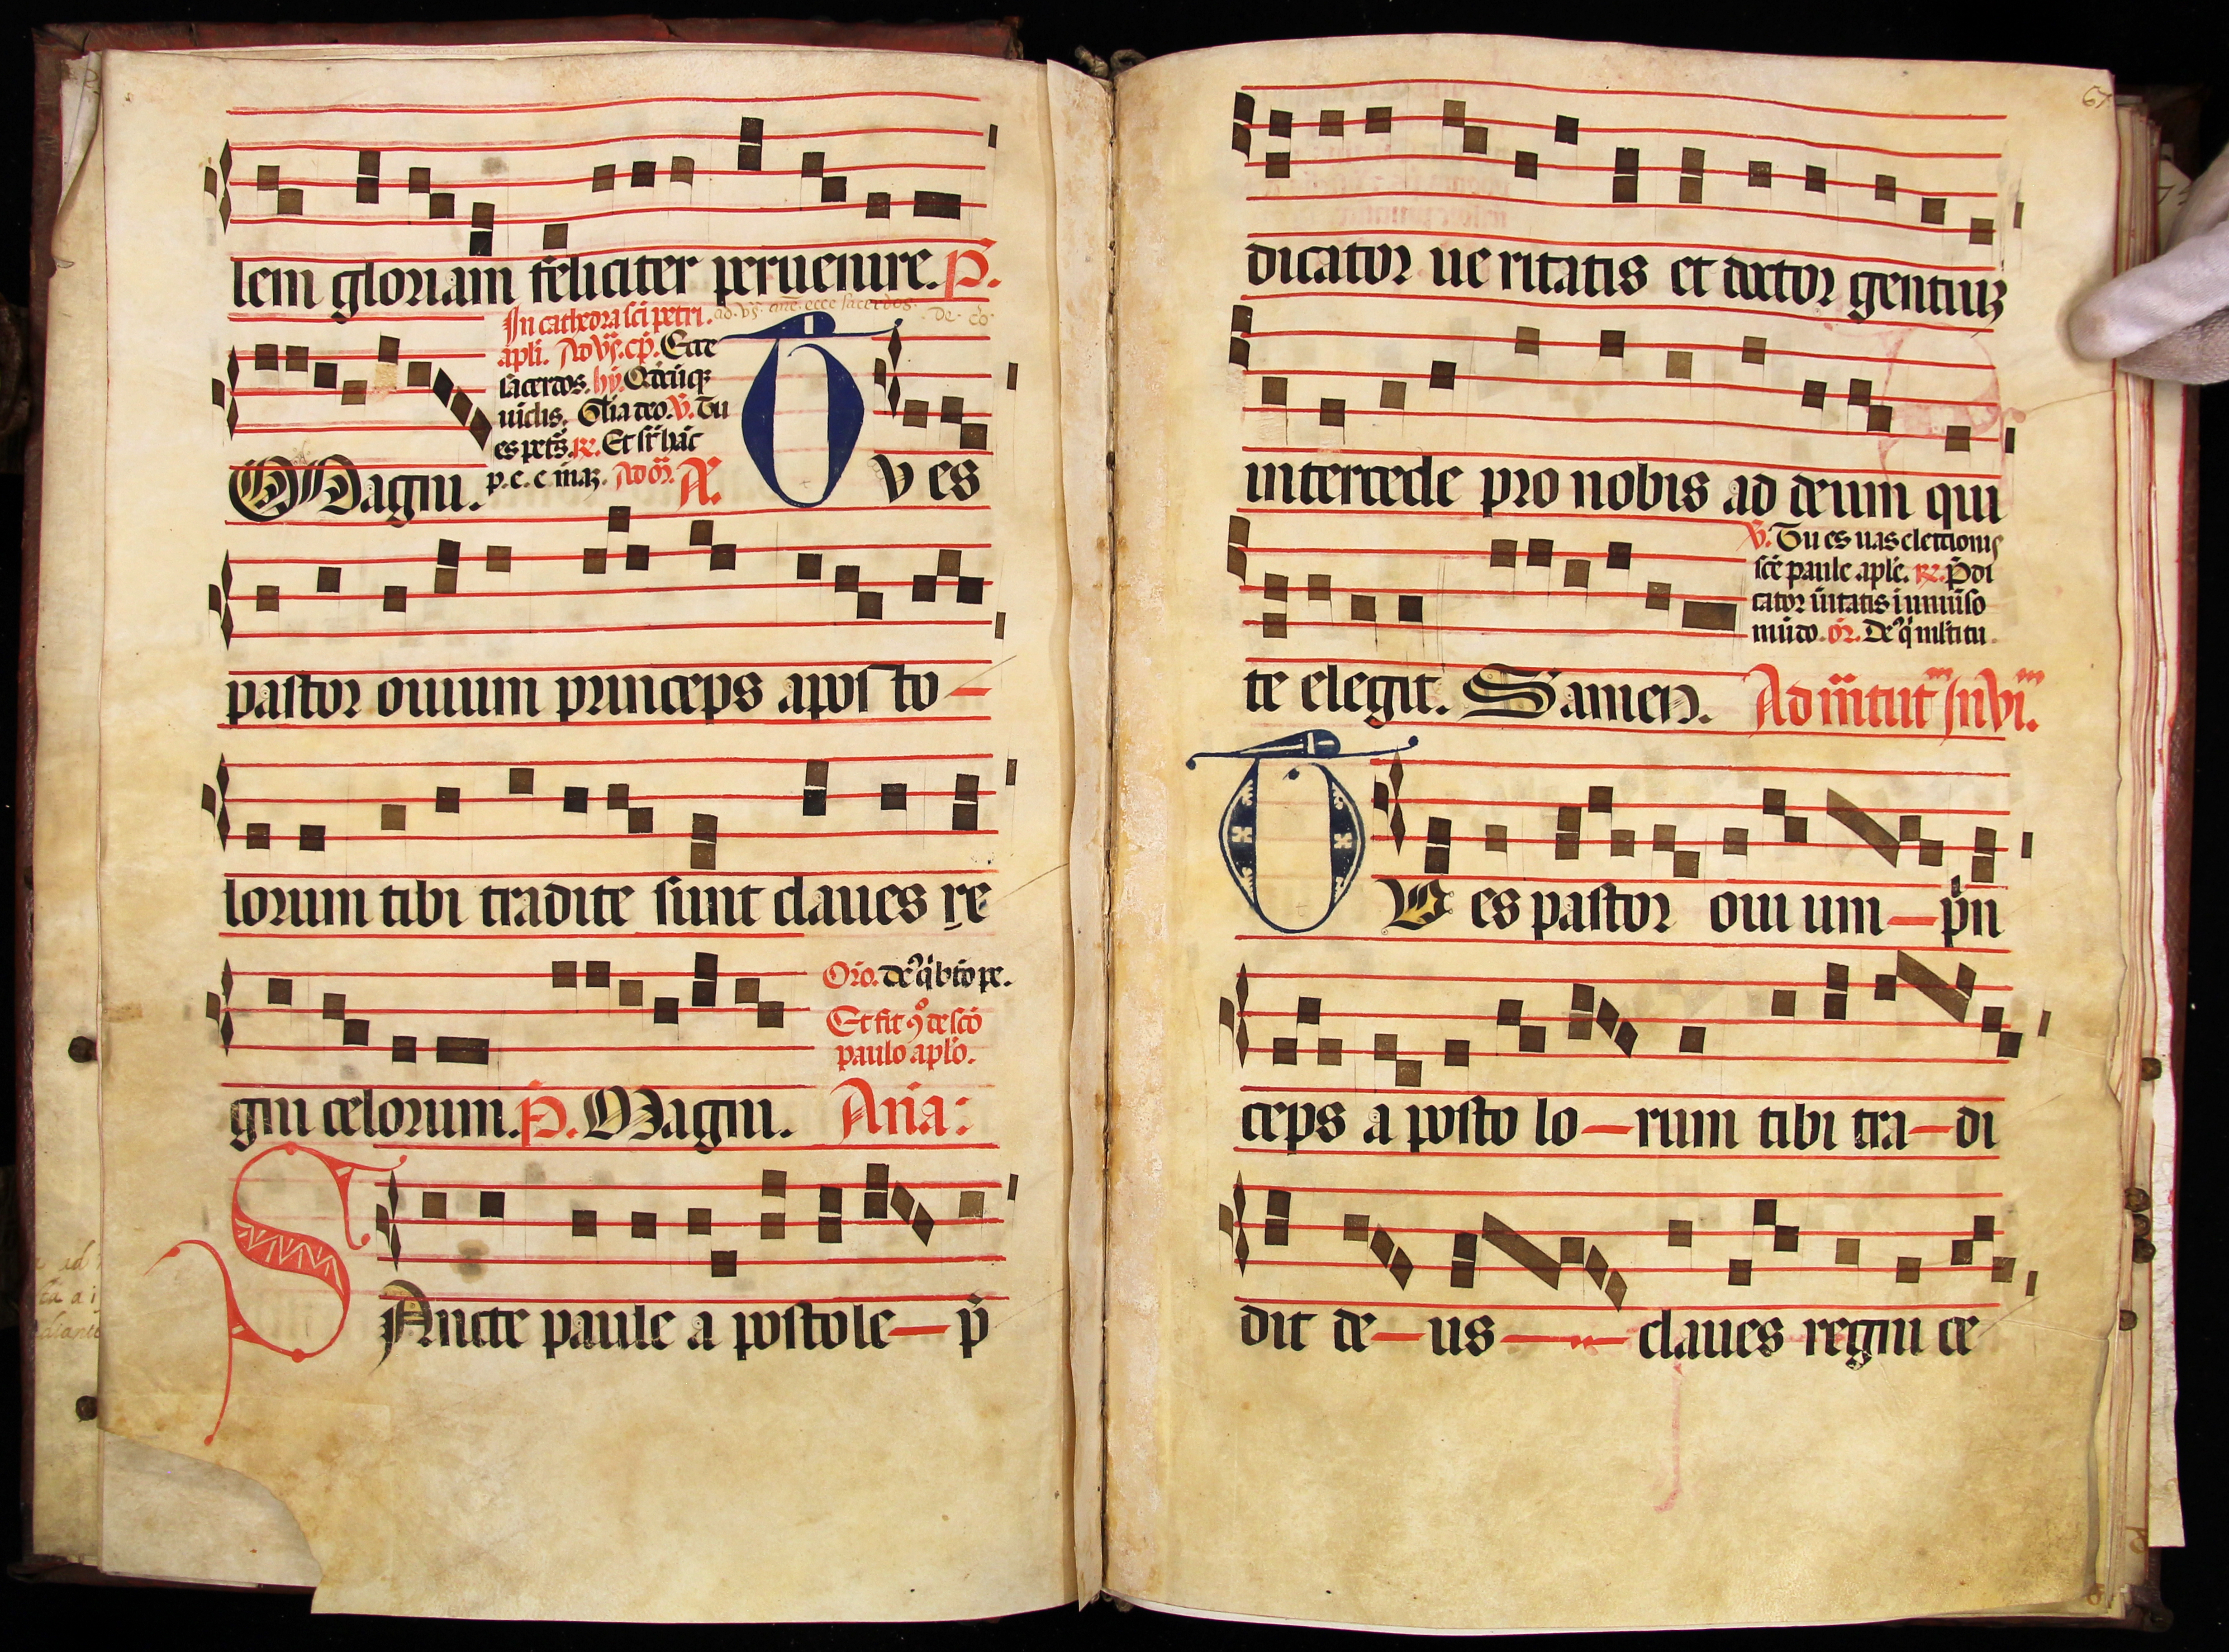 lem gloriam feliciter peruenire. P.
In cathedra sci petri. ad. vs. ane. ecce sacerdos.
apli. Ad vs. cp. Ecce
sacerdos. hy. Qdcuqz
uiclis. Glia deo. V. Tu
es petrs. R. Et sr hac
p. e. e. meaz. Ad m. A.
Magni. Tv es
pastor ouium princeps aposto
lorum tibi tradite sunt claues re
Oro. de q bto pe.
Et fit 9o de sco
paulo aplo.
gni celorum. P. Magni. Ana:
SAncte paule a postole p
67
dicator ue ritatis et doctor gentiuz
intercede pro nobis ad deum qui
V. Tu es uas electionis
sce paule aple. R. Pdi
cator uitatis i uniuso
mudo. or. De q mltitu
te elegit. S amen. Ad matut Inui.
TV es pastor oui um prin
ceps a posto lo rum tibi tra di
dit de us claues regni ce